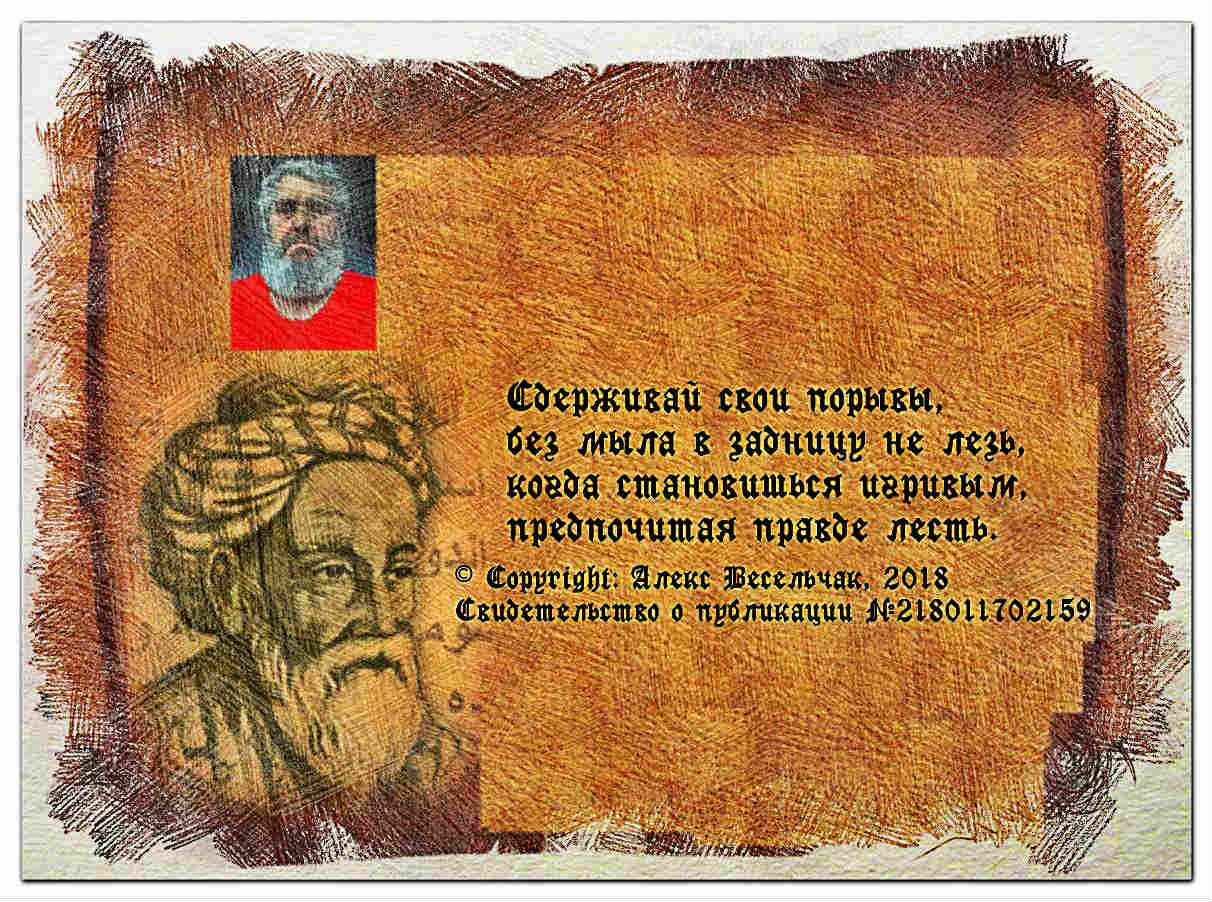 Сдерживай свои порывы,
без мыла в задницу не лезь,
когда становишься игривым,
предпочитая правде лесть.
© Copyright: Алекс Весельчак, 2018
Свидетельство о публикации №218011702159